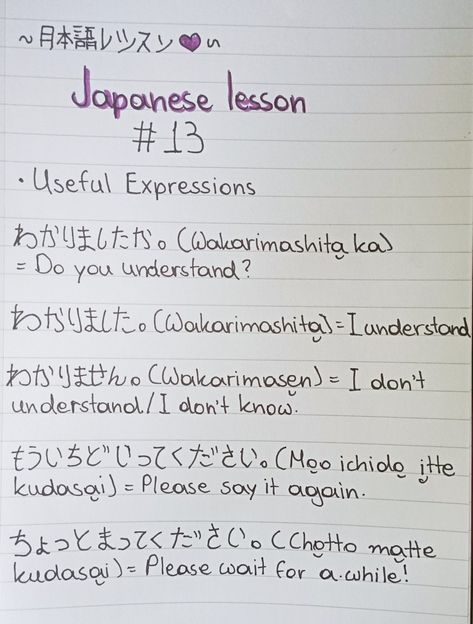 ~月本語レッスン♥~
Japanese lesson
#13
• Useful Expressions
わかりましたか。(Wakarimashita ka)
= Do you understand?
わかりました。(Wakarimashita)= I understand
わかりません。(Wakarimasen) = I don't
understand/I don't know.
もういちどじってください。(Moo ichido itte
kudasai) = Please say it again.
ちょっとまってください。(Chotto matte
kudasai)= Please wait for a while!